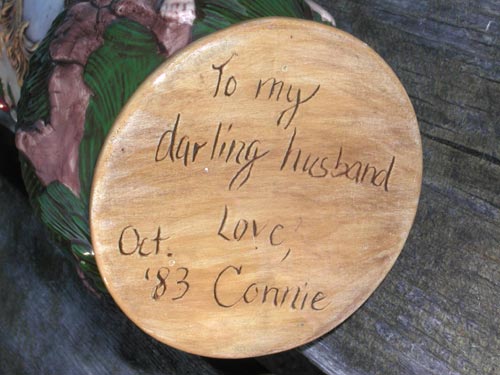 To my
darling husband
Love,
Oct.
'83 Connie